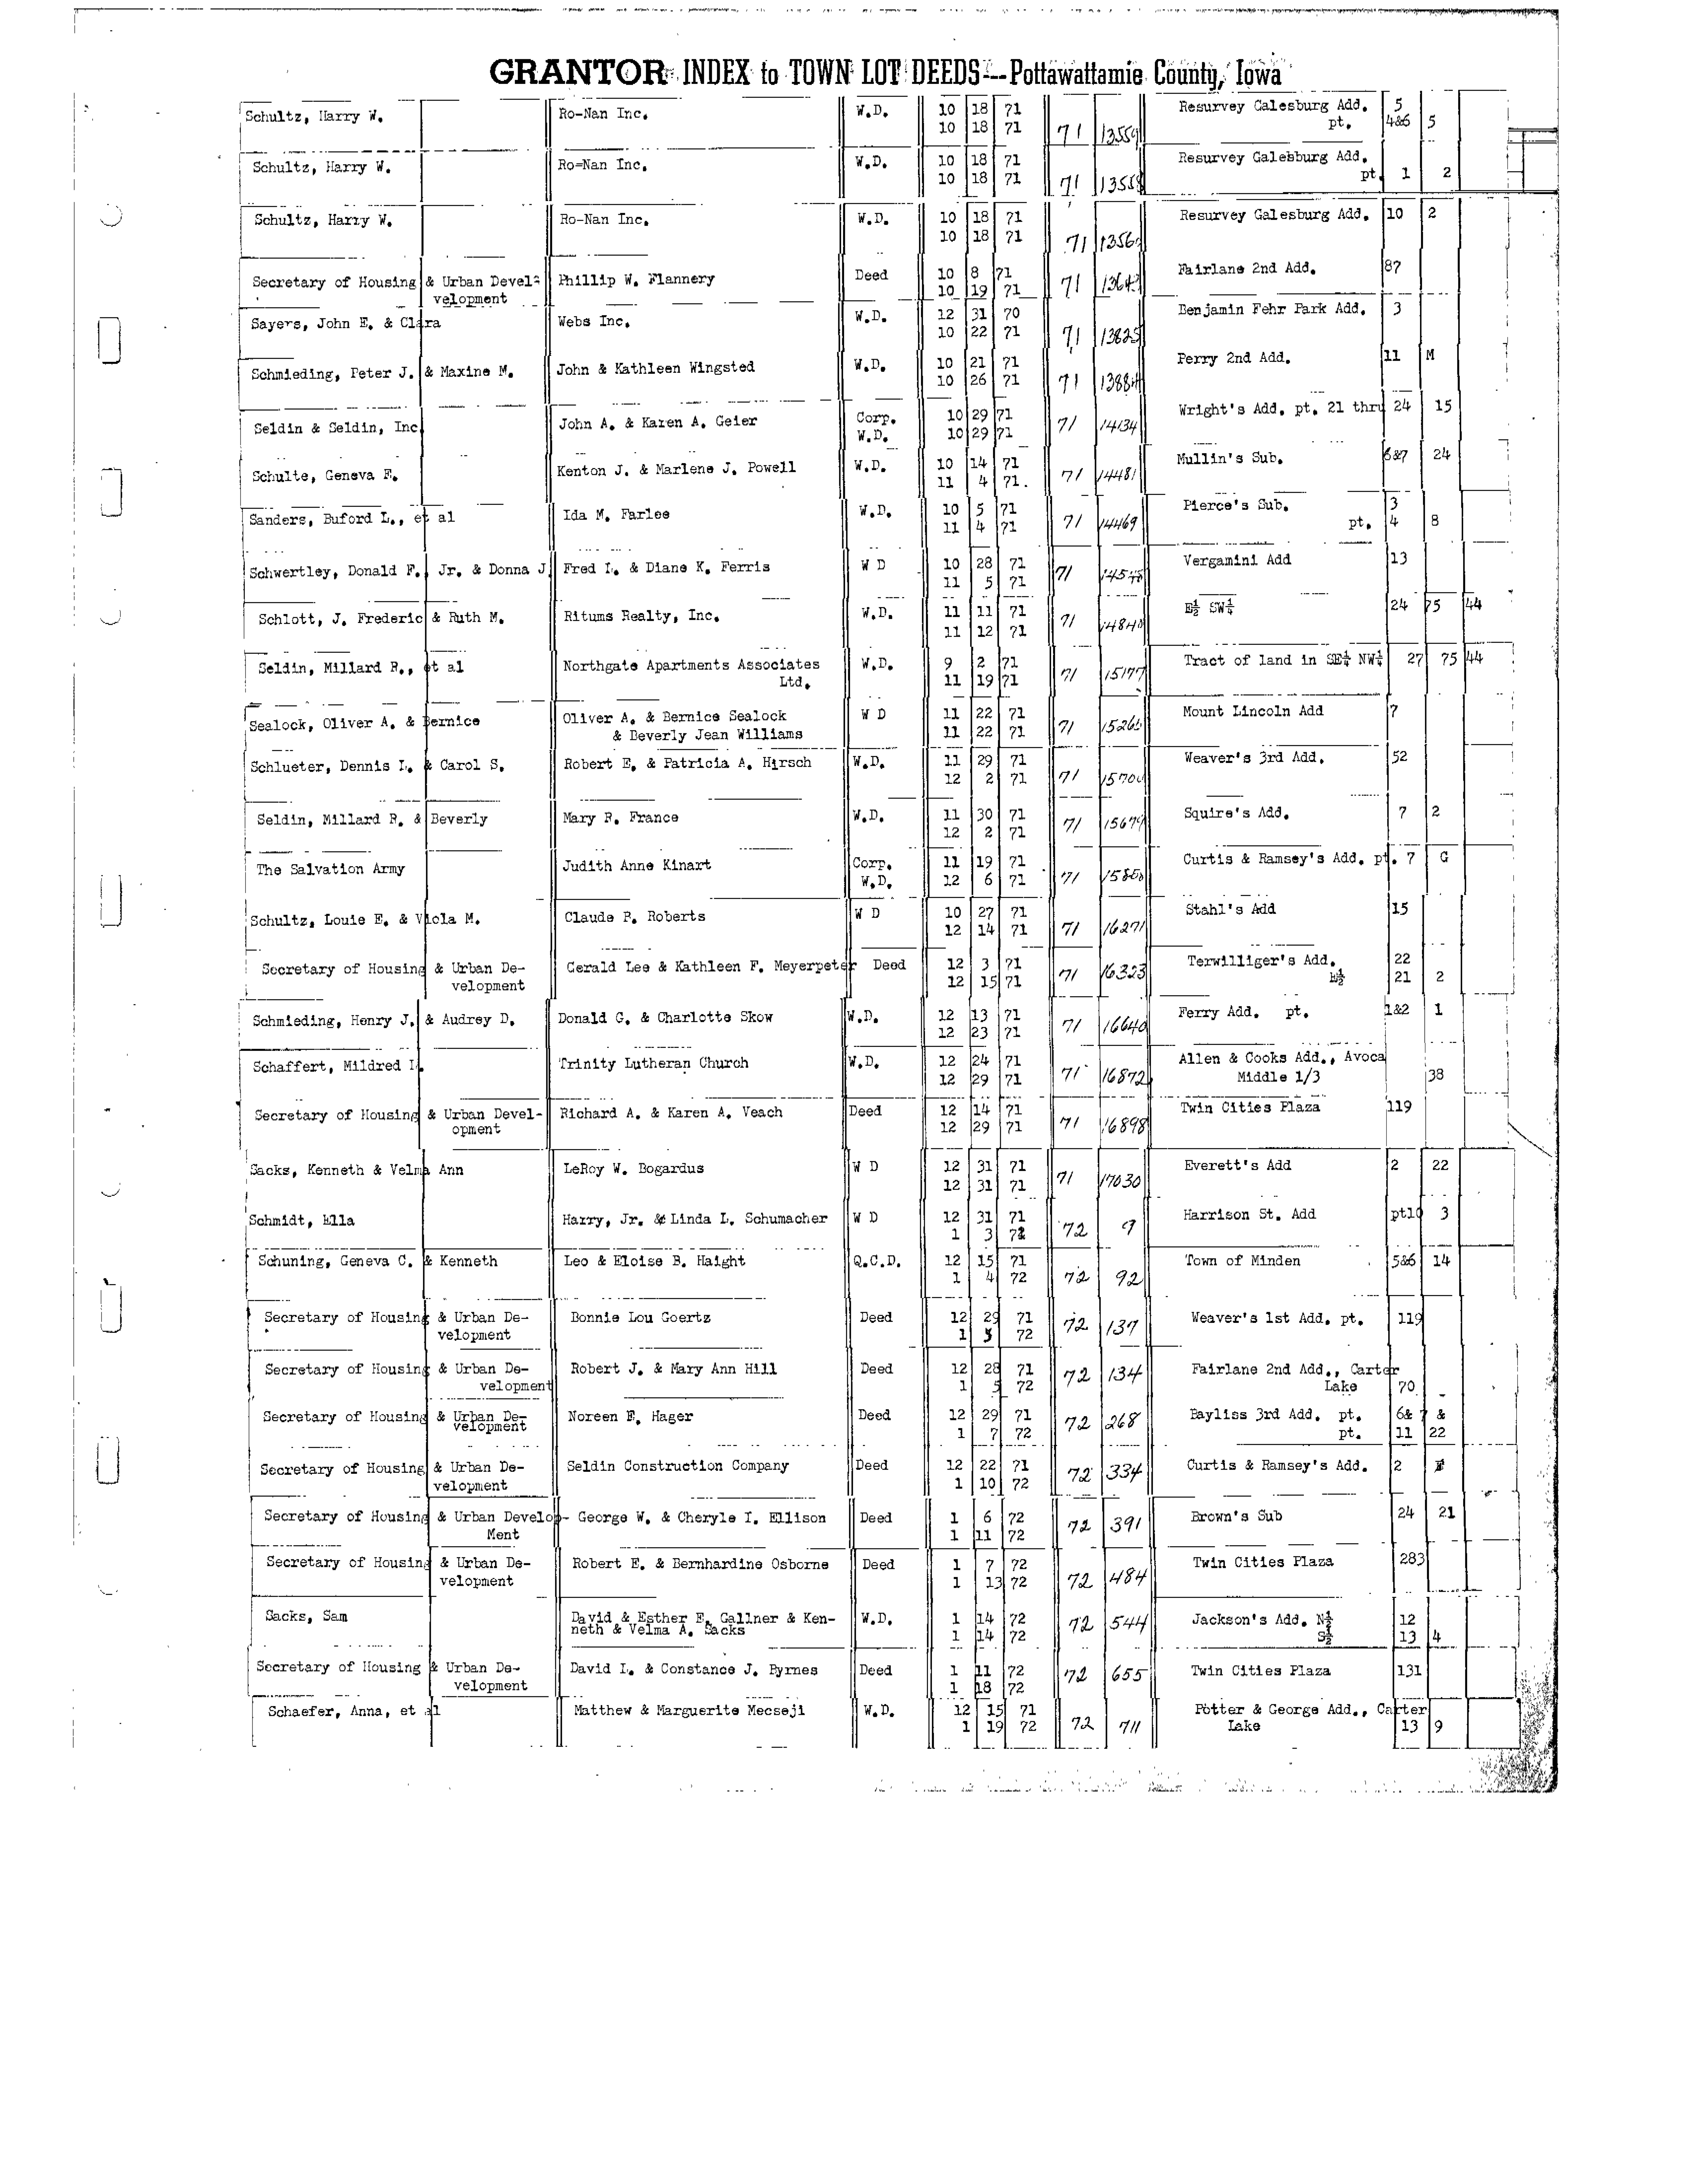 GRANTOR INDEX to TOWN LOT DEEDS--Pottawattamie County, Iowa
Schultz, Harry W. Ro-Nan Inc. W.D. 10 18 71 Resurvey Galesburg Add. 5
10 18 71 71 13559 pt. 4&6 5
Schultz, Harry W. Ro=Nan Inc. W.D. 10 18 71 Resurvey Galesburg Add.
10 18 71 71 13558 pt. 1 2
Schultz, Harry W. Ro-Nan Inc. W.D. 10 18 71 Resurvey Galesburg Add. 10 2
10 18 71 71 1356
Secretary of Housing & Urban Devel- Phillip W. Flannery Deed 10 8 71 Fairlane 2nd Add. 87
velopment 10 19 71 71 13643
Sayers, John E. & Clara Webs Inc. W.D. 12 31 70 Benjamin Fehr Park Add. 3
10 22 71 71 13825
Schmieding, Peter J. & Maxine M. John & Kathleen Wingsted W.D. 10 21 71 Perry 2nd Add. 11 M
10 26 71 71 13884
Seldin & Seldin, Inc John A. & Karen A. Geier Corp. 10 29 71 Wright's Add. pt. 21 thru 24 15
W.D. 10 29 71 71 14134
Schulte, Geneva E. Kenton J. & Marlene J. Powell W.D. 10 14 71 Mullin's Sub. 6&7 24
11 4 71. 71 14481
Sanders, Buford L., et al Ida M. Farlee W.D. 10 5 71 Pierce's Sub. 3
11 4 71 71 14469 pt. 4 8
Schwertley, Donald F. Jr. & Donna J Fred L. & Diane K. Ferris W D 10 28 71 Vergamini Add 13
11 5 71 71 14548
Schlott, J. Frederic & Ruth M. Ritums Realty, Inc. W.D. 11 11 71 E½ SW¼ 24 75 44
11 12 71 71 14848
Seldin, Millard R., et al Northgate Apartments Associates W.D. 9 2 71 Tract of land in SE¼ NW¼ 27 75 44
Ltd. 11 19 71 71 15177
Sealock, Oliver A. & Bernice Oliver A. & Bernice Sealock W D 11 22 71 Mount Lincoln Add 7
& Beverly Jean Williams 11 22 71 71 1526
Schlueter, Dennis L. & Carol S. Robert E. & Patricia A. Hirsch W.D. 11 29 71 Weaver's 3rd Add. 52
12 2 71 71 1570
Seldin, Millard R. & Beverly Mary R. France W.D. 11 30 71 Squire's Add. 7 2
12 2 71 71 15679
The Salvation Army Judith Anne Kinart Corp. 11 19 71 Curtis & Ramsey's Add. pt. 7 G
W.D. 12 6 71 71 15858
Schultz, Louie E. & Viola M. Claude P. Roberts W D 10 27 71 Stahl's Add 15
12 14 71 71 16271
Secretary of Housing & Urban De- Gerald Lee & Kathleen F. Meyerpeter Deed 12 3 71 Terwilliger's Add. 22
velopment 12 15 71 71 16323 E½ 21 2
Schmieding, Henry J. & Audrey D. Donald G. & Charlotte Skow W.D. 12 13 71 Ferry Add. pt. 1&2 1
12 23 71 71 16640
Schaffert, Mildred L. Trinity Lutheran Church W.D. 12 24 71 Allen & Cooks Add., Avoca
12 29 71 71 16872 Middle 1/3 38
Secretary of Housing & Urban Devel- Richard A. & Karen A. Veach Deed 12 14 71 Twin Cities Plaza 119
opment 12 29 71 71 16898
Sacks, Kenneth & Velma Ann LeRoy W. Bogardus W D 12 31 71 Everett's Add 2 22
12 31 71 71 17030
Schmidt, Ella Harry, Jr. & Linda L. Schumacher W D 12 31 71 Harrison St. Add pt10 3
1 3 72 72 9
Schuning, Geneva C. & Kenneth Leo & Eloise B. Haight Q.C.D. 12 15 71 Town of Minden 5&6 14
1 4 72 72 92
Secretary of Housing & Urban De- Bonnie Lou Goertz Deed 12 29 71 Weaver's 1st Add. pt. 119
velopment 1 5 72 72 137
Secretary of Housing & Urban De- Robert J. & Mary Ann Hill Deed 12 28 71 Fairlane 2nd Add., Carter
velopment 1 5 72 72 134 Lake 70
Secretary of Housing & Urban De- Noreen F. Hager Deed 12 29 71 Bayliss 3rd Add. pt. 6& 7 &
velopment 1 7 72 72 268 pt. 11 22
Secretary of Housing & Urban De- Seldin Construction Company Deed 12 22 71 Curtis & Ramsey's Add. 2
velopment 1 10 72 72 334
Secretary of Housing & Urban Develop- George W. & Cheryle I. Ellison Deed 1 6 72 Brown's Sub 24 21
Ment 1 11 72 72 391
Secretary of Housing & Urban De- Robert E. & Bernhardine Osborne Deed 1 7 72 Twin Cities Plaza 283
velopment 1 13 72 72 484
Sacks, Sam David & Esther E. Gallner & Ken- W.D. 1 14 72 Jackson's Add. N½ 12
neth & Velma A. Sacks 1 14 72 72 544 S½ 13 4
Secretary of Housing & Urban De- David L. & Constance J. Pyrnes Deed 1 11 72 Twin Cities Plaza 131
velopment 1 18 72 72 655
Schaefer, Anna, et al Matthew & Marguerite Mecseji W.D. 12 15 71 Potter & George Add., Carter
1 19 72 72 711 Lake 13 9